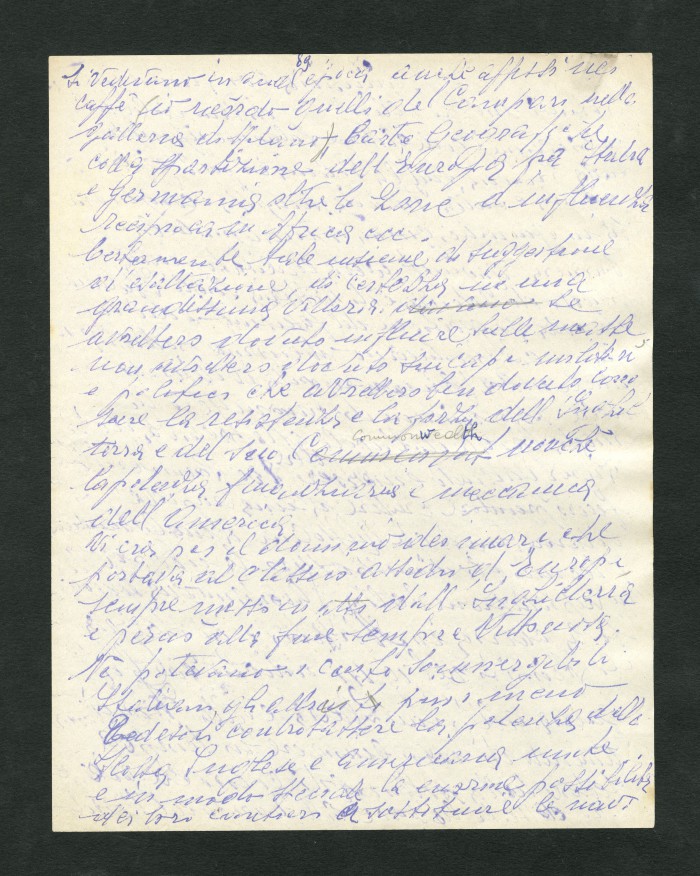 89
Si vedevano in quell'epoca anche affissi nei
caffè (io ricordo quelli del Campari nella
Galleria di Milano) Carte Geografiche
colla spartizione dell'Europa fra Italia
e Germania oltre le zone d'influenza
reciproca in Africa ecc.
Certamente tale insieme di suggestione
di esaltazione, di certezza in una
grandissima vittoria, se
avrebbero dovuto influire sulle masse
non avrebbero dovuto sui capi militari
e politici che avrebbero ben dovuto cono
scere la resistenza e la forza dell'Inghil
terra e del suo Commonwealth nonché
la potenza finanziaria e meccanica
dell'America.
Vi era poi il dominio dei mari che
portava al classico assedio d'Europa,
sempre messo in atto dall'Inghilterra
e perciò alla fine sempre vittoriosa.
Né potevano i cento sommergibili
Italiani, gli pur meno
Tedeschi controbattere la potenza della
flotta Inglese e americana unite
e in modo speciale la enorme possibilità
dei loro cantieri a sostituire le navi